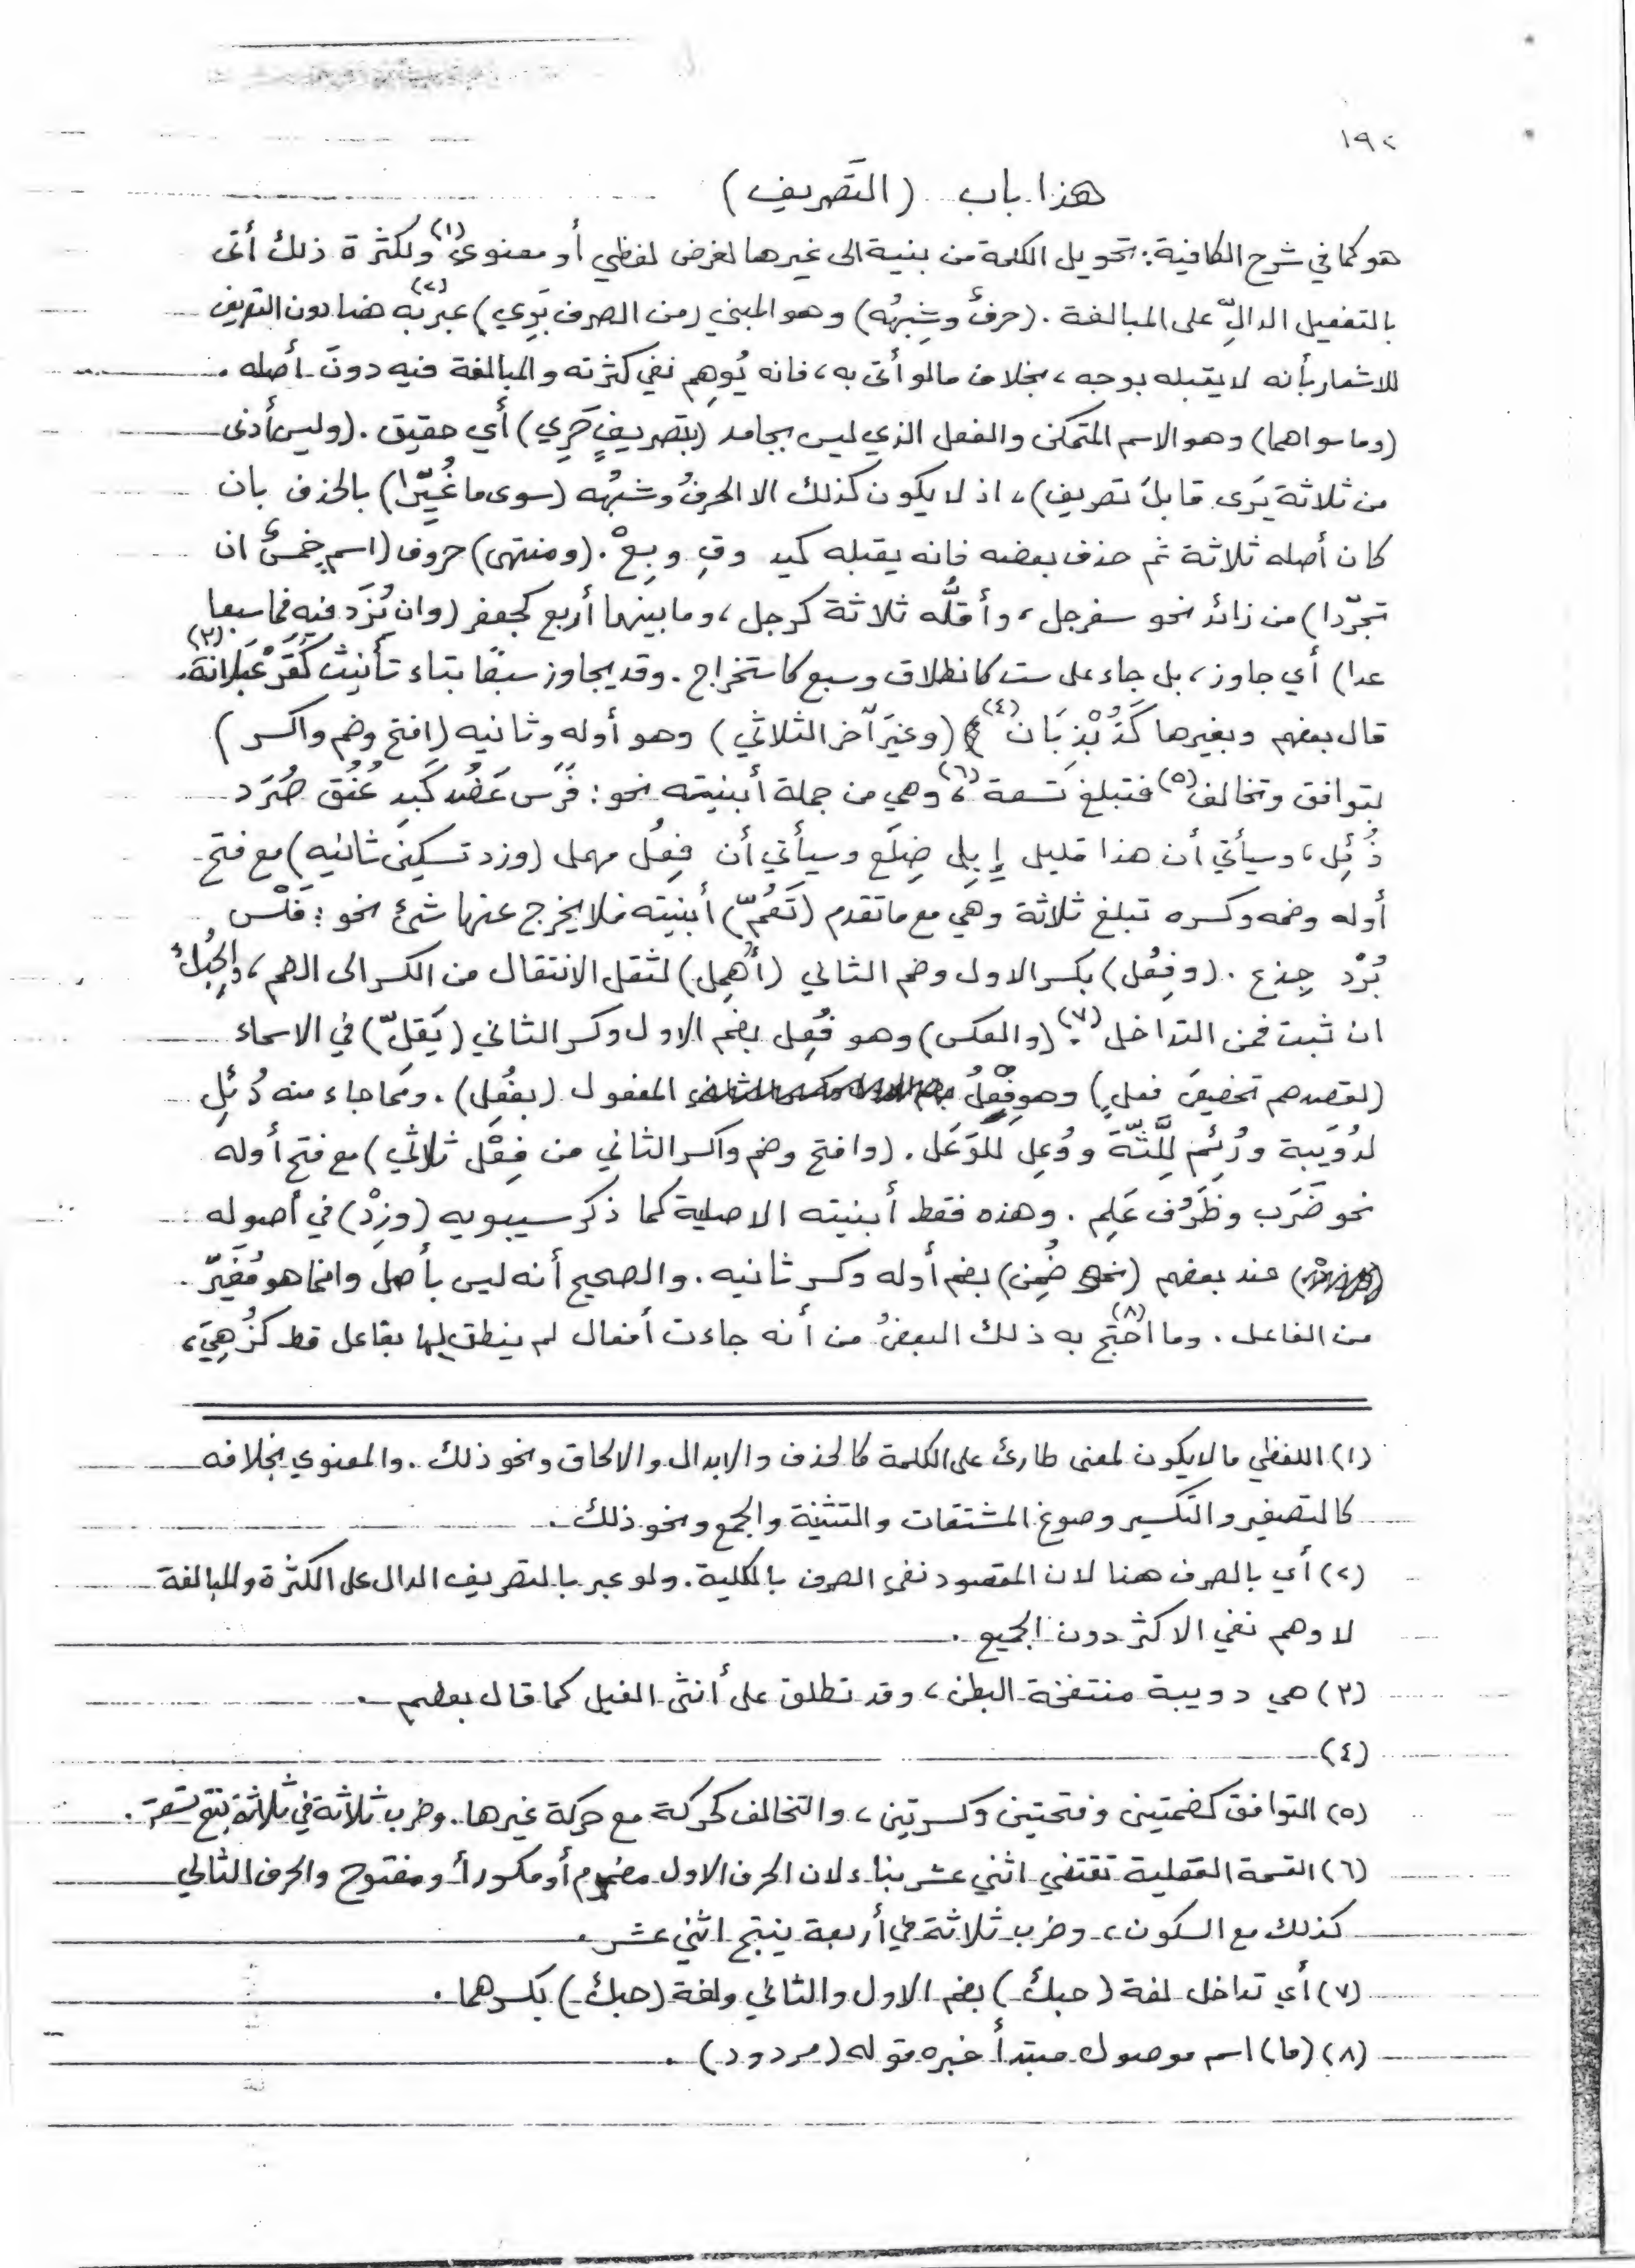 ١٩٢
هذا باب (التَصريف)
هو كما في شرح الكافية: تحويل الكلمة من بنية الى غيرها لغرض لفظي أو معنوي(١) ولكثرة ذلك أتى
بالتفعيل الدالّ على المبالغة. (حرفٌ وشِبهُه) وهو المبني (من الصرف بَرِي) عبّر به(٢) هنا دون التصريف
للاشعار بأنه لا يقبله بوجه، بخلاف ما لو أتى به، فانه يُوهِم نفي كثرته والمبالغة فيه دونَ أصله.
(وما سواهما) وهو الاسم المتمكن والفعل الذي ليس بجامد (بتصريفٍ حَرِي) أي حقيق. (وليس أدنى
من ثلاثة يَرَى قابلَ تصريف)، اذ لا يكون كذلك الا الحرفُ وشبهُه (سوى ما غُيِّرا) بالحذف بان
كان أصله ثلاثة ثم حذف بعضه فانه يقبله كيد وقِ وبِعْ. (ومنتهى) حروف (اسم خمسٌ ان
تجرّدا) من زائد نحو سفرجل، وأقلُّه ثلاثة كرجل، وما بينهما أربع كجعفر (وان يُزَد فيه فما سبعا
عدا) أي جاوز، بل جاء على ست كانطلاق وسبع كاستخراج. وقد يجاوز سبعًا بتاء تأنيث كَقَرَعْبَلانة(٣).
قال بعضهم وبغيرها كَذُبْذِبَان(٤) (وغيرَ آخر الثلاثي) وهو أوله وثانيه (افتح وضم واكسر)
بتوافق وتخالف(٥) فتبلغ تسعة(٦)، وهي من جملة أبنيته نحو: فَرَس عَضُد كَبِد عُنُق صُرَد
دُئِل، وسيأتي أن هذا قليل إِبِلِ ضِلَع وسيأتي أن فِعُل مهمل (وزد تسكينَ ثانيه) مع فتح
أوله وضمه وكسره تبلغ ثلاثة وهي مع ما تقدم (تَعُمّ) أبنيته فلا يخرج عنها شئ نحو: فَلْس
بُرْد جِذع. (وفِعُل) بكسر الاول وضم الثاني (أُهمِل) لثقل الانتقال من الكسر الى الضم، والحِبُك
ان ثبت فمن التداخل(٧). (والعكس) وهو فُعِل بضم الاول وكسر الثاني (يَقلّ) في الاسماء
(لقصدهم تخصيصَ فعلٍ) وهو فِعْلُ المفعول (بفُعِل). ومما جاء منه دُئِل
لدُوَيبة ورُئِم لِلَّثَّة ووُعِل للوَعَل. (وافتح وضم واكسر الثاني من فِعْل ثلاثي) مع فتح أوله
نحو ضَرَب وظَرُف عَلِم. وهذه فقط أبنيته الاصلية كما ذكر سيبويه (وزِدْ) في أصوله
عند بعضهم (نحو ضُمِن) بضم أوله وكسر ثانيه. والصحيح أنه ليس بأصل وانما هو مُغَيَّر
من الفاعل. وما احتج(٨) به ذلك البعضُ من أنه جاءت أفعال لم ينطق لها بفاعل قط كزُهِيَ،
(١) اللفظي ما لا يكون لمعنى طارئ على الكلمة كالحذف والابدال والالحاق ونحو ذلك. والمعنوي بخلافه
كالتصغير والتكسير وصوغ المشتقات والتثنية والجمع ونحو ذلك.
(٢) أي بالصرف هنا لان المقصود نفي الصرف بالكلية. ولو عبر بالتصريف الدال على الكثرة والمبالغة
لاوهم نفي الاكثر دون الجميع.
(٣) هي دويبة منتفخة البطن، وقد تطلق على أنثى الفيل كما قال بعضهم.
(٤)
(٥) التوافق كضمتين وفتحتين وكسرتين، والتخالف كحركة مع حركة غيرها. وضرب ثلاثة في ثلاثة ينتج تسعة.
(٦) القسمة العقلية تقتضي اثني عشر بناء لان الحرف الاول مضموم أو مكسورأ ومفتوح والحرف الثاني
كذلك مع السكون، وضرب ثلاثة في أربعة ينتج اثني عشر.
(٧) أي تداخل لغة (حبك) بضم الاول والثاني ولغة (حبك) بكسرهما.
(٨) (ما) اسم موصول مبتدأ خبره قوله (مردود).